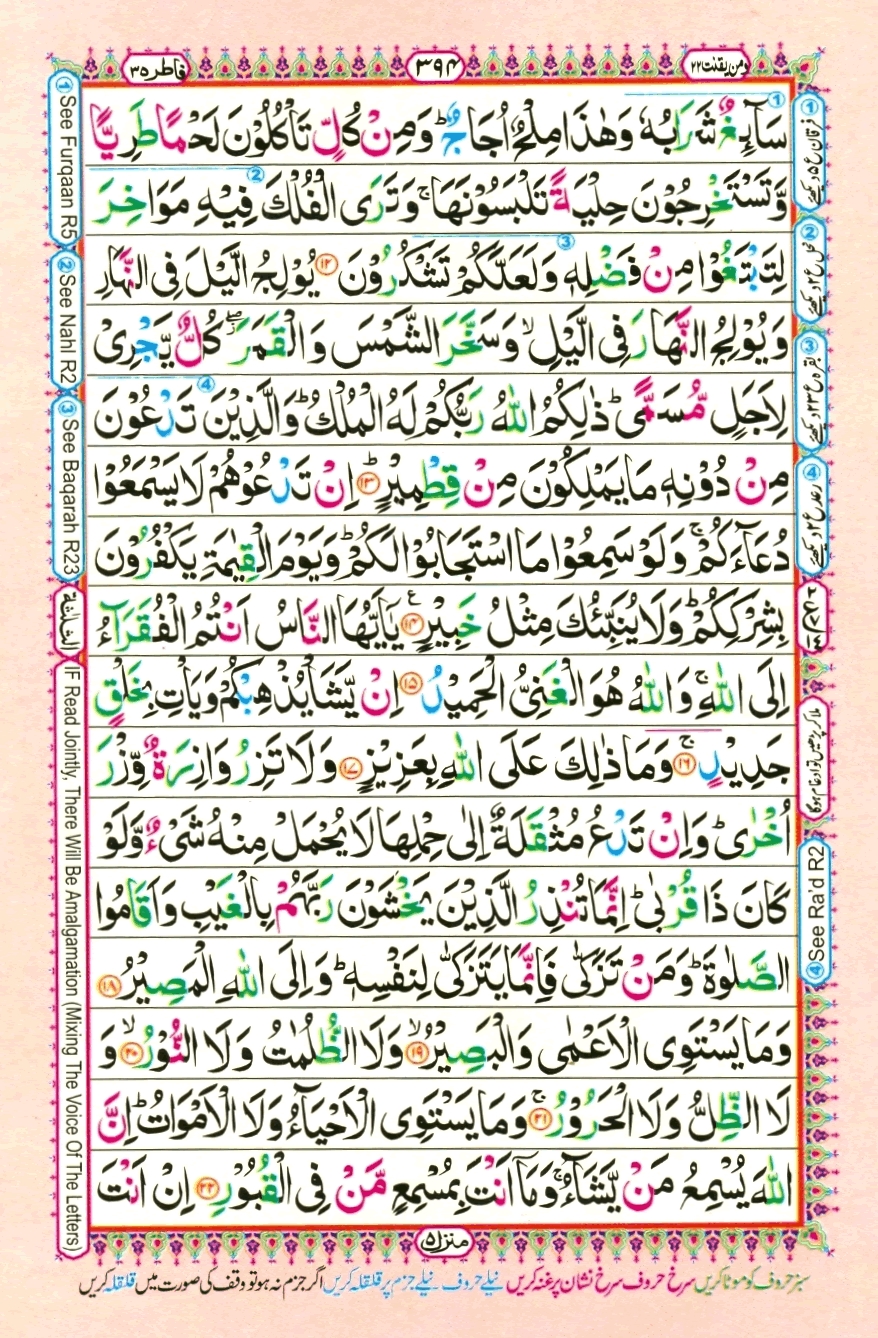 ومن یقنت ۲۲
۳۹۴
فاطر ۳۵
سَآئِغٌ شَرَابُهٗ وَهٰذَا مِلْحٌ اُجَاجٌ ؕ وَمِنْ كُلٍّ تَاْكُلُوْنَ لَحْمًا طَرِیًّا
وَّتَسْتَخْرِجُوْنَ حِلْیَةً تَلْبَسُوْنَهَا ۚ وَتَرَی الْفُلْكَ فِیْهِ مَوَاخِرَ
لِتَبْتَغُوْا مِنْ فَضْلِهٖ وَلَعَلَّكُمْ تَشْكُرُوْنَ ۱۲ یُوْلِجُ الَّیْلَ فِی النَّهَارِ
وَیُوْلِجُ النَّهَارَ فِی الَّیْلِ ۙ وَسَخَّرَ الشَّمْسَ وَالْقَمَرَ ۖ كُلٌّ یَّجْرِیْ
لِاَجَلٍ مُّسَمًّی ؕ ذٰلِكُمُ اللّٰهُ رَبُّكُمْ لَهُ الْمُلْكُ ؕ وَالَّذِیْنَ تَدْعُوْنَ
مِنْ دُوْنِهٖ مَا یَمْلِكُوْنَ مِنْ قِطْمِیْرٍ ؕ ۱۳ اِنْ تَدْعُوْهُمْ لَا یَسْمَعُوْا
دُعَآءَكُمْ ۚ وَلَوْ سَمِعُوْا مَا اسْتَجَابُوْا لَكُمْ ؕ وَیَوْمَ الْقِیٰمَةِ یَكْفُرُوْنَ
بِشِرْكِكُمْ ؕ وَلَا یُنَبِّئُكَ مِثْلُ خَبِیْرٍ ۱۴ ع یٰۤاَیُّهَا النَّاسُ اَنْتُمُ الْفُقَرَآءُ
اِلَی اللّٰهِ ۚ وَاللّٰهُ هُوَ الْغَنِیُّ الْحَمِیْدُ ۱۵ اِنْ یَّشَاْ یُذْهِبْكُمْ وَیَاْتِ بِخَلْقٍ
جَدِیْدٍ ۚ ۱۶ وَمَا ذٰلِكَ عَلَی اللّٰهِ بِعَزِیْزٍ ۱۷ وَلَا تَزِرُ وَازِرَةٌ وِّزْرَ
اُخْرٰی ؕ وَاِنْ تَدْعُ مُثْقَلَةٌ اِلٰی حِمْلِهَا لَا یُحْمَلْ مِنْهُ شَیْءٌ وَّلَوْ
كَانَ ذَا قُرْبٰی ؕ اِنَّمَا تُنْذِرُ الَّذِیْنَ یَخْشَوْنَ رَبَّهُمْ بِالْغَیْبِ وَاَقَامُوا
الصَّلٰوةَ ؕ وَمَنْ تَزَكّٰی فَاِنَّمَا یَتَزَكّٰی لِنَفْسِهٖ ؕ وَاِلَی اللّٰهِ الْمَصِیْرُ ۱۸
وَمَا یَسْتَوِی الْاَعْمٰی وَالْبَصِیْرُ ۙ ۱۹ وَلَا الظُّلُمٰتُ وَلَا النُّوْرُ ۙ ۲۰ وَ
لَا الظِّلُّ وَلَا الْحَرُوْرُ ۚ ۲۱ وَمَا یَسْتَوِی الْاَحْیَآءُ وَلَا الْاَمْوَاتُ ؕ اِنَّ
اللّٰهَ یُسْمِعُ مَنْ یَّشَآءُ ۚ وَمَاۤ اَنْتَ بِمُسْمِعٍ مَّنْ فِی الْقُبُوْرِ ۲۲ اِنْ اَنْتَ
① فرقان ع ۵ دیکھئے
② نحل ع ۲ دیکھئے
③ بقرہ ع ۲۳ دیکھئے
④ رعد ع ۲ دیکھئے
ملا کر پڑھیں تو ادغام ہوگا
④ See Ra'd R2
① See Furqaan R5
② See Nahl R2
③ See Baqarah R23
الثلٰثة
IF Read Jointly, There Will Be Amalgamation (Mixing The Voice Of The Letters)
منزل ۵
سبز حروف کو موٹا کریں سرخ حروف سرخ نشان پر غنہ کریں نیلے حروف نیلے جزم پر قلقلہ کریں اگر جزم نہ ہو تو وقف کی صورت میں قلقلہ کریں